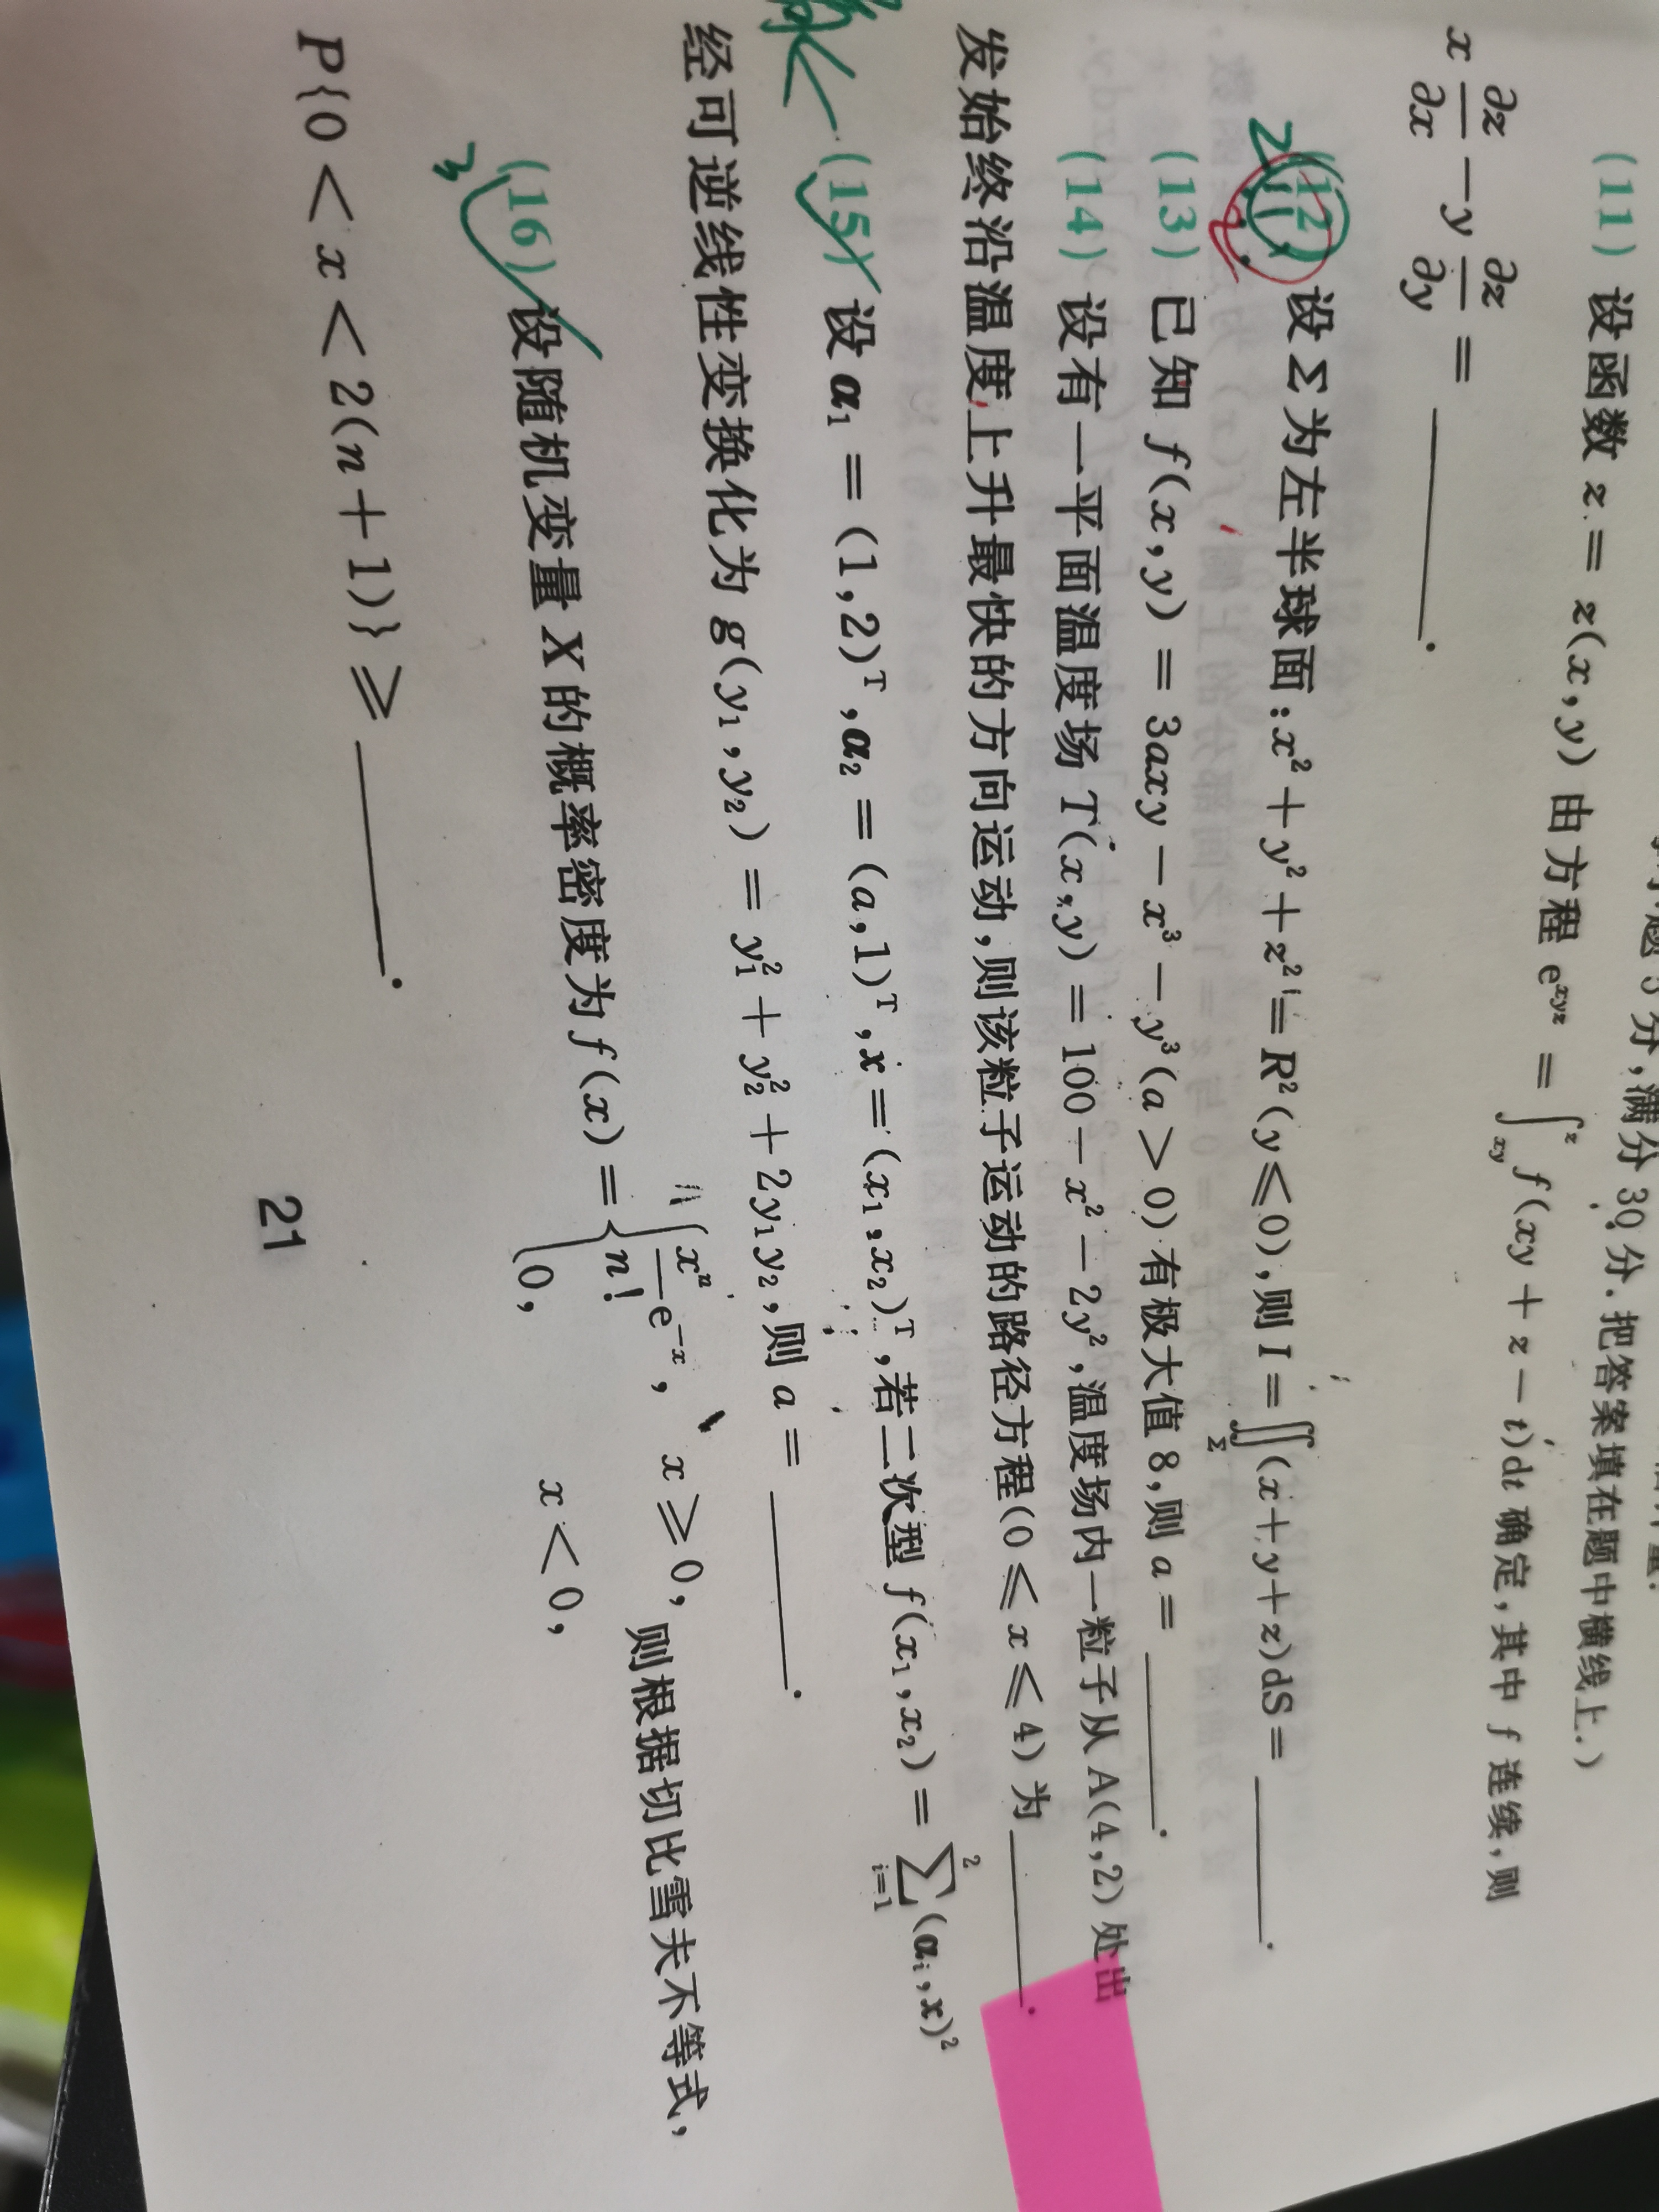 小题5分,满分30分.把答案填在题中横线上.)
(11) 设函数 z = z(x,y) 由方程 e^{xyz} = ∫_{xy}^{z} f(xy + z − t)dt 确定,其中 f 连续,则
x ∂z/∂x − y ∂z/∂y = ______.
(12) 设 Σ 为左半球面:x² + y² + z² = R²(y ⩽ 0),则 I = ∬_Σ (x + y + z)dS = ______.
(13) 已知 f(x,y) = 3axy − x³ − y³(a > 0) 有极大值 8,则 a = ______.
(14) 设有一平面温度场 T(x,y) = 100 − x² − 2y²,温度场内一粒子从 A(4,2) 处出
发始终沿温度上升最快的方向运动,则该粒子运动的路径方程(0 ⩽ x ⩽ 4) 为 ______.
(15) 设 α₁ = (1,2)ᵀ,α₂ = (a,1)ᵀ,x = (x₁,x₂)ᵀ,若二次型 f(x₁,x₂) = ∑_{i=1}^{2} (αᵢ,x)²
经可逆线性变换化为 g(y₁,y₂) = y₁² + y₂² + 2y₁y₂,则 a = ______.
(16) 设随机变量 X 的概率密度为 f(x) = { xⁿ/n! e^{−x}, x ⩾ 0, 0, x < 0, 则根据切比雪夫不等式,
P{0 < x < 2(n + 1)} ⩾ ______.
21